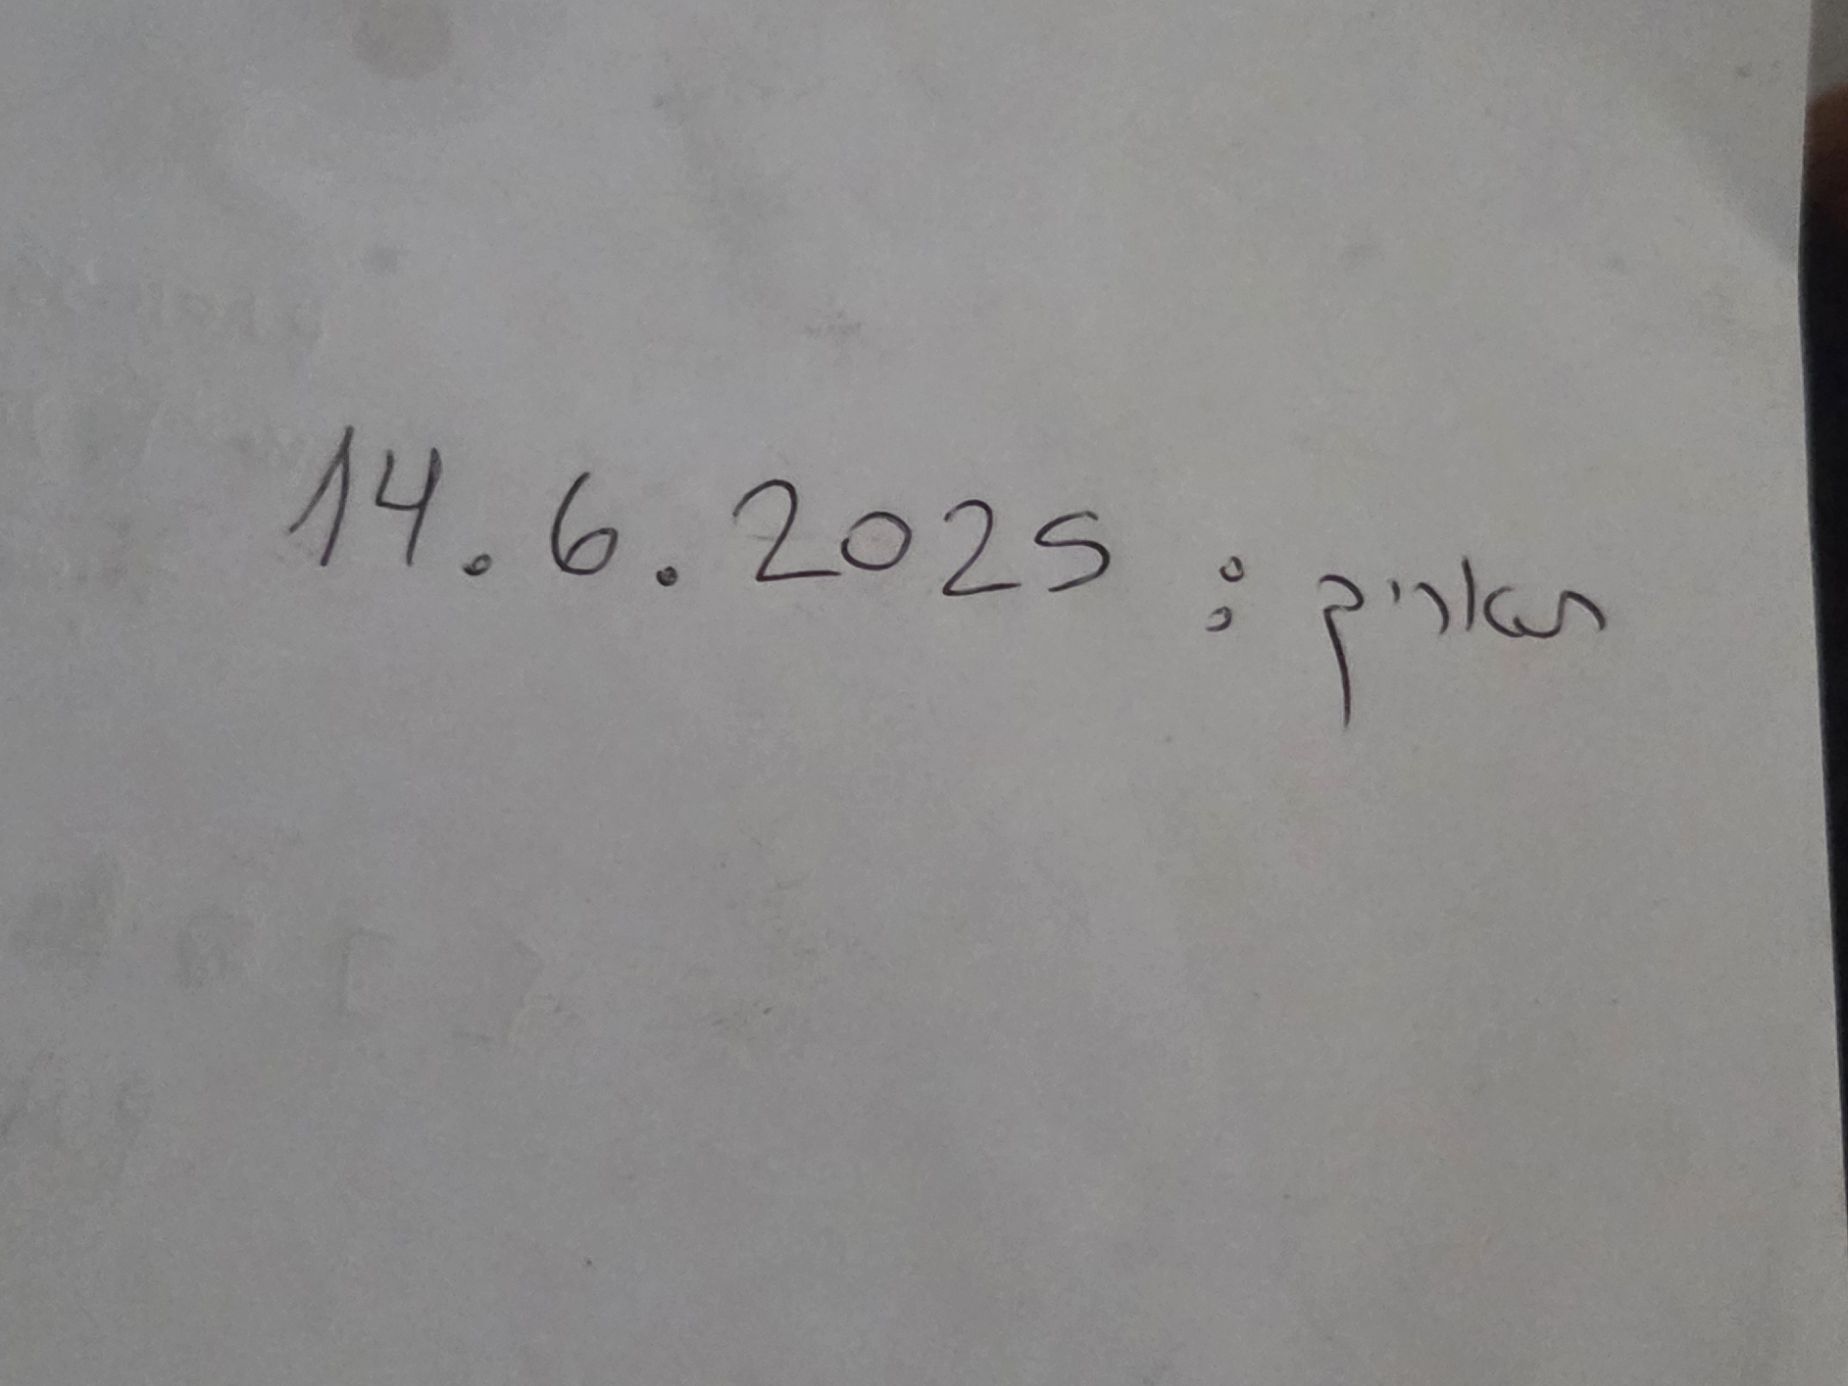 תאריך : 14.6.2025